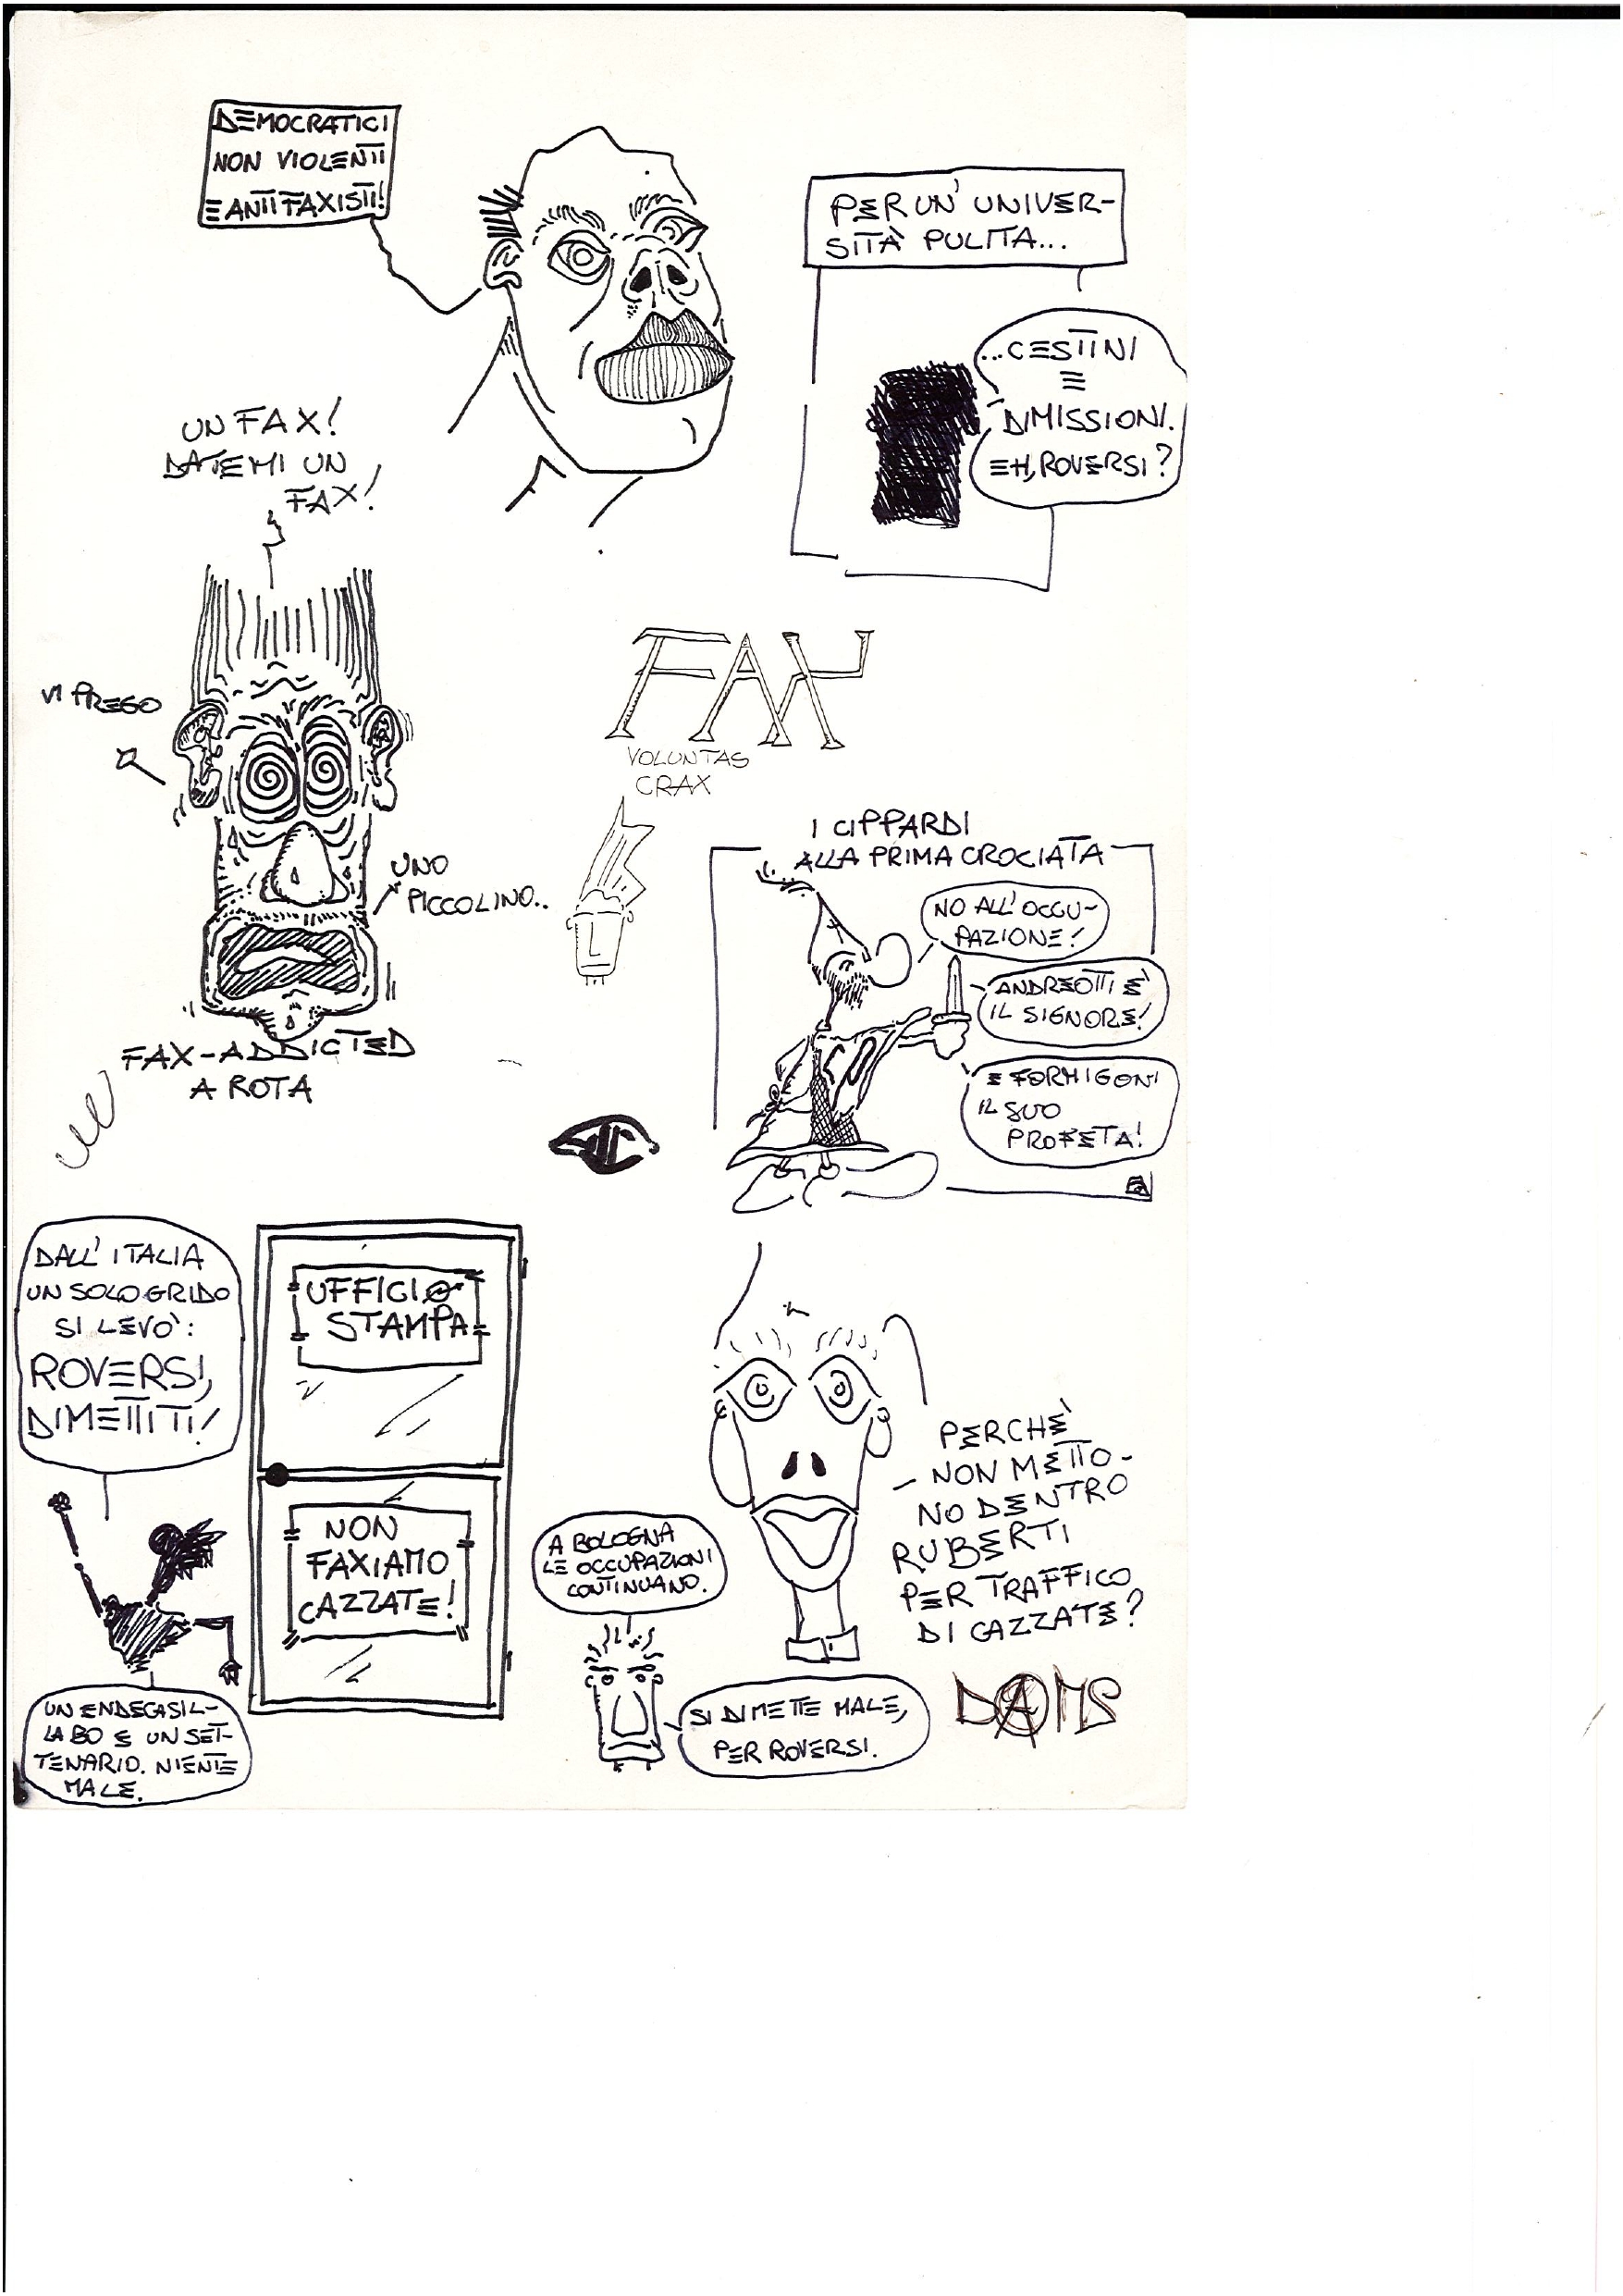 DEMOCRATICI
NON VIOLENTI
E ANTIFAXISTI!
PER UN' UNIVER-
SITÀ PULITA...
...CESTINI
E
DIMISSIONI.
EH, ROVERSI?
UN FAX!
DATEMI UN
FAX!
VI PREGO
UNO
PICCOLINO..
FAX-ADDICTED
A ROTA
FAX
VOLUNTAS
CRAX
I CIPPARDI
ALLA PRIMA CROCIATA
NO ALL'OCCU-
PAZIONE!
ANDREOTTI È
IL SIGNORE!
E FORMIGONI
IL SUO
PROFETA!
DALL' ITALIA
UN SOLO GRIDO
SI LEVO':
ROVERSI,
DIMETTITI!
UN ENDECASIL-
LABO E UN SET-
TENARIO. NIENTE
MALE.
UFFICIO
STAMPA
NON
FAXIAMO
CAZZATE!
A BOLOGNA
LE OCCUPAZIONI
CONTINUANO.
SI DIMETTE MALE,
PER ROVERSI.
PERCHÈ
NON METTO-
NO DENTRO
RUBERTI
PER TRAFFICO
DI CAZZATE?
DAMS